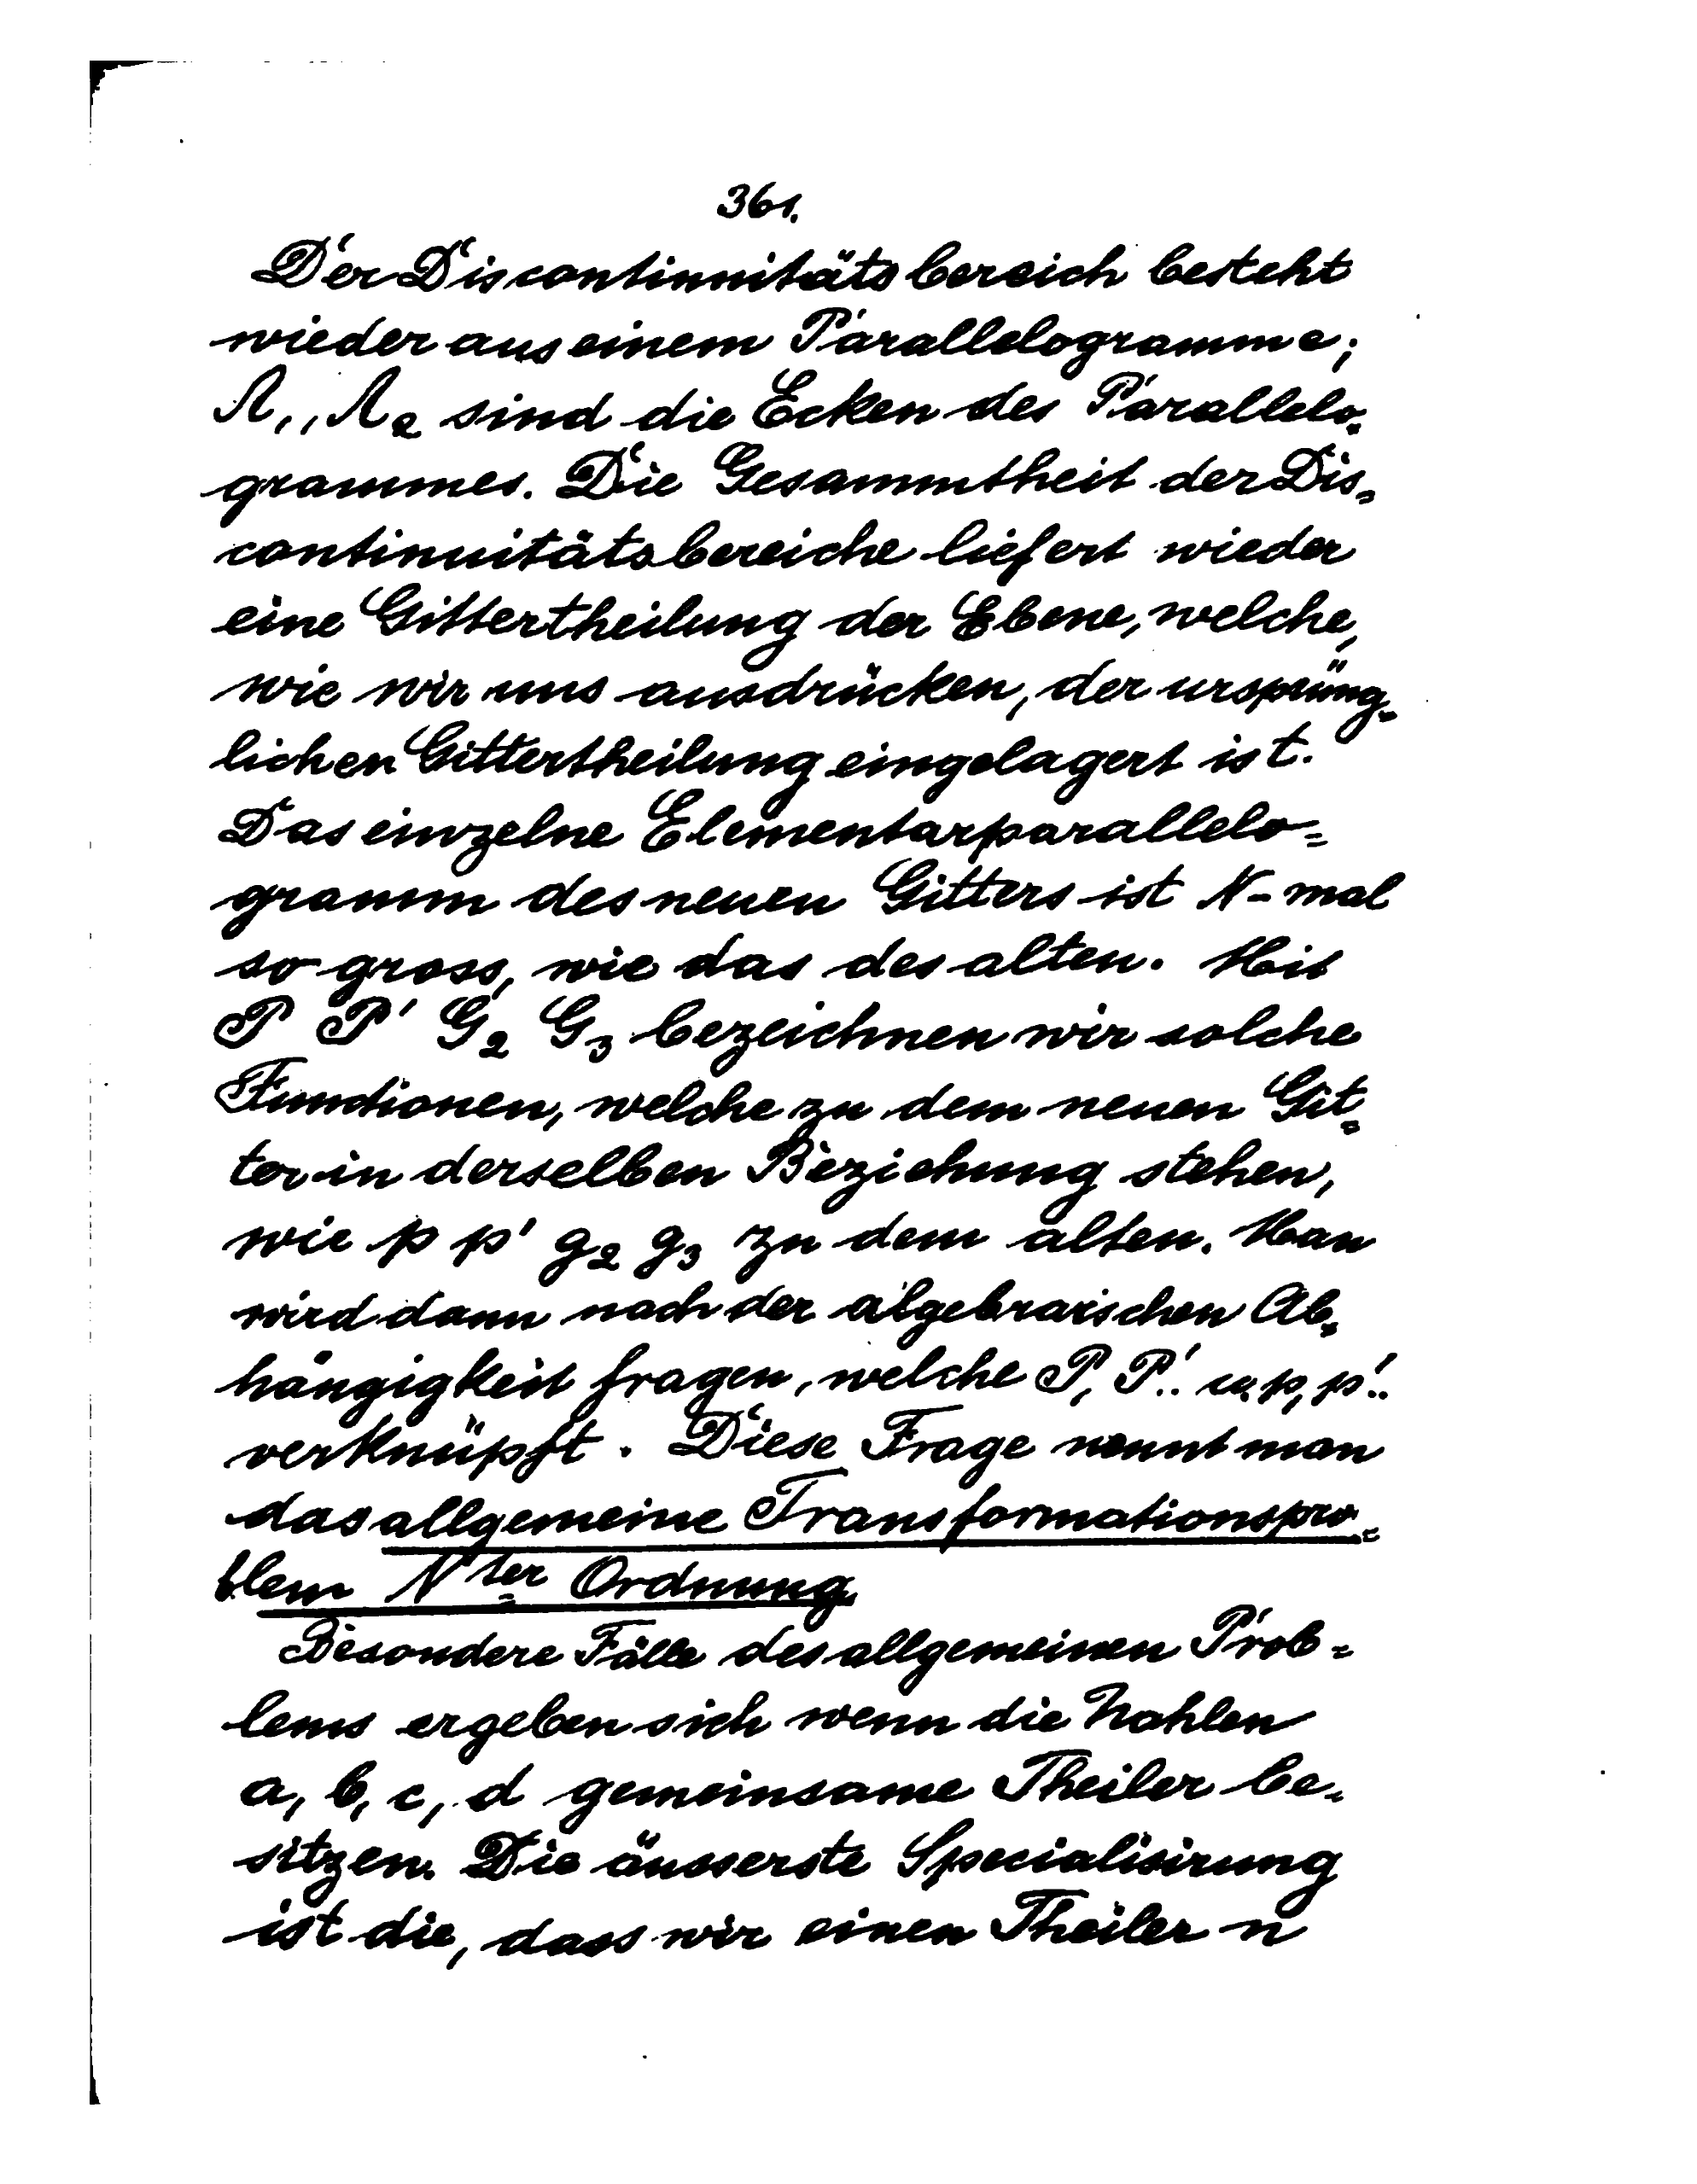 361.
Der Discontinuitätsbereich besteht
wieder aus einem Parallelogramme;
Λ₁, Λ₂ sind die Ecken des Parallelo-
grammes. Die Gesammtheit der Dis-
continuitätsbereiche liefert wieder
eine Gittertheilung der Ebene, welche,
wie wir uns ausdrücken, der ursprüng-
lichen Gittertheilung eingelagert ist.
Das einzelne Elementarparallelo=
gramm des neuen Gitters ist N-mal
so gross, wie das des alten. Mit
P P' G₂ G₃ bezeichnen wir solche
Functionen, welche zu dem neuen Git=
ter in derselben Beziehung stehen,
wie p p' g₂ g₃ zu dem alten. Man
wird dann nach der algebraischen Ab-
hängigkeit fragen, welche P, P'.. u. p, p'..
verknüpft. Diese Frage nennt man
das allgemeine Transformationspro=
blem Nter Ordnung.
Besondere Fälle des allgemeinen Prob=
lems ergeben sich wenn die Zahlen
a, b, c, d gemeinsame Theiler be-
sitzen. Die äusserste Specialisirung
ist die, dass wir einen Theiler n